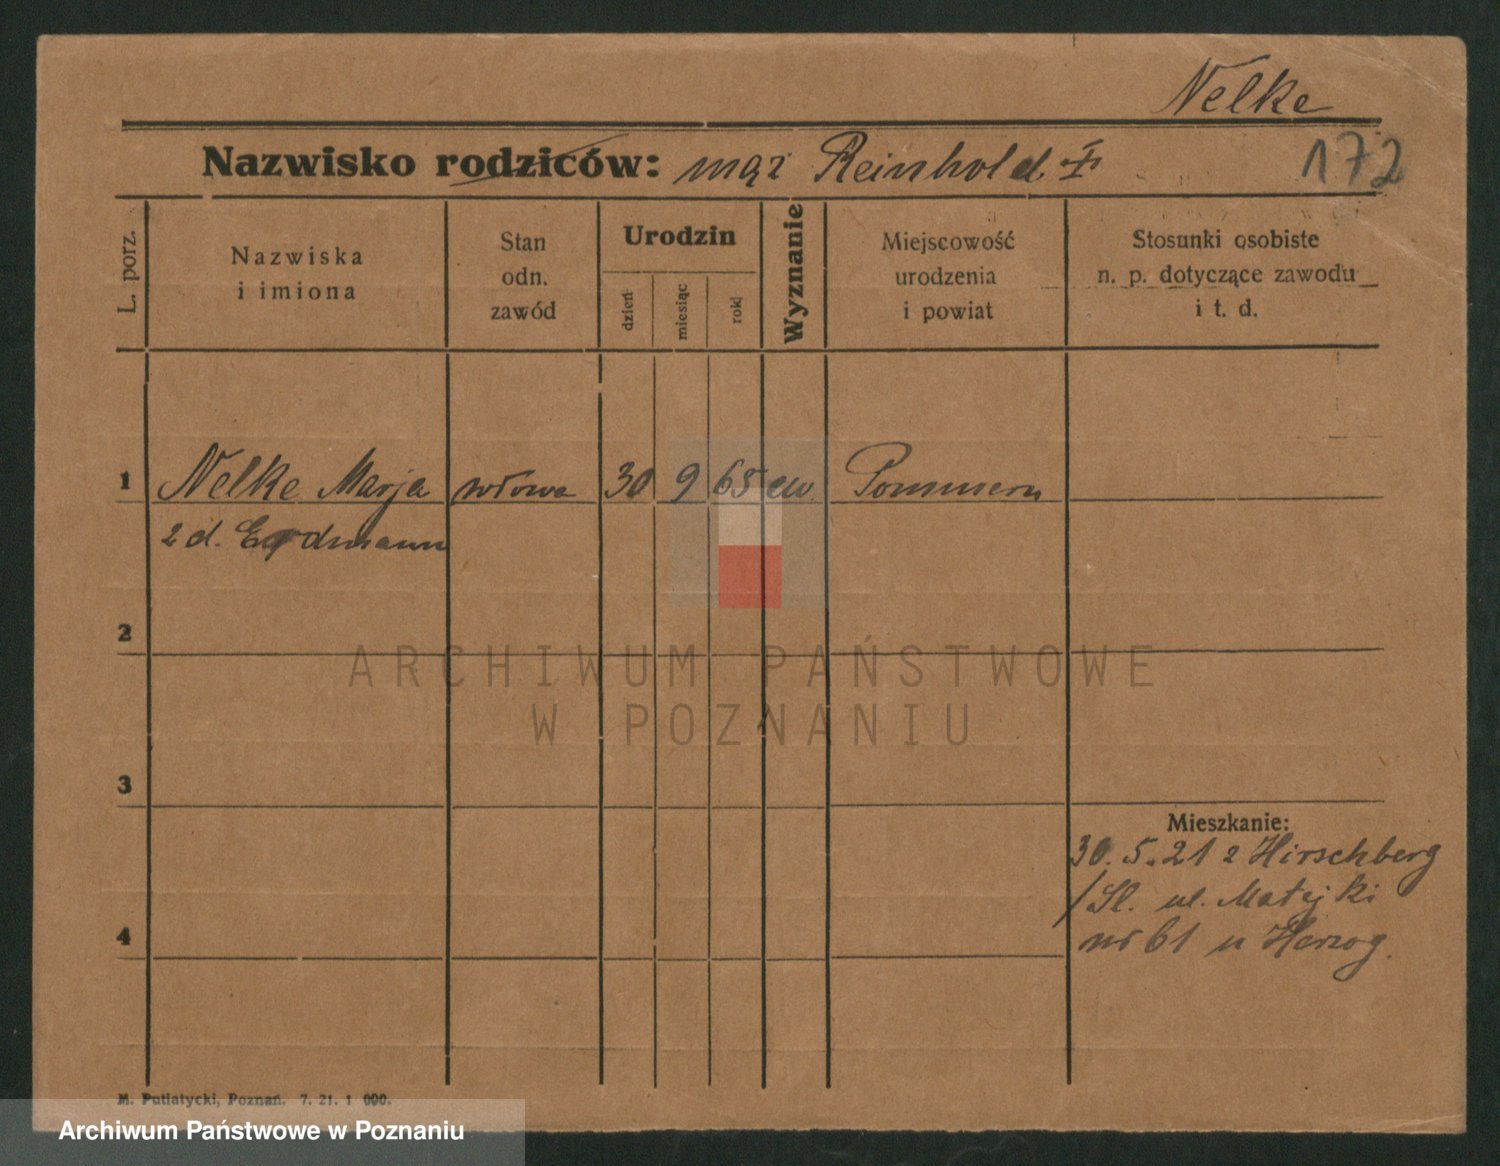 Nelke
Nazwisko rodziców: mąż Reinhold †
172
L. porz.
Nazwiska
i imiona
Stan
odn.
zawód
Urodzin
dzień
miesiąc
rok
Wyznanie
Miejscowość
urodzenia
i powiat
Stosunki osobiste
n. p. dotyczące zawodu
i t. d.
1 Nelke Marja wdowa 30 9 65 ew. Pommern
z d. Erdmann
2
ARCHIWUM PAŃSTWOWE
W POZNANIU
3
Mieszkanie:
30. 5. 21 z Hirschberg
/Sl. ul. Matejki
4
nr 61 u Herzog.
M. Putiatycki, Poznań. 7. 21. 1 000.
Archiwum Państwowe w Poznaniu